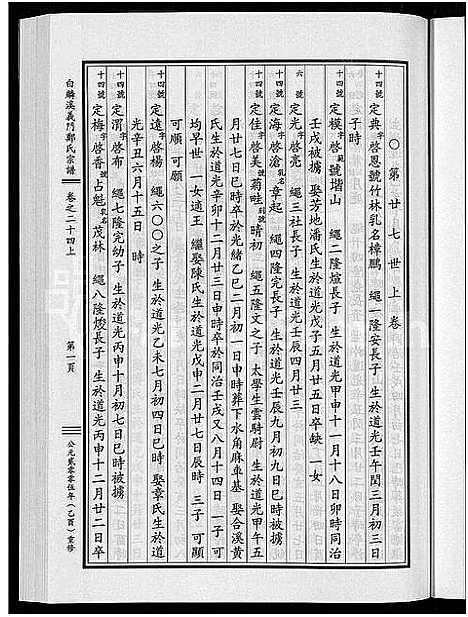 ○第廿七世上卷
十四號 定典字啓恩號竹林乳名樟鵬 繩一隆安長子 生於道光壬午閏三月初三日
子時
十四號 定模字啓範號堦山 繩二隆煊長子 生於道光甲申十一月十八日卯時同治
壬戌被擄 娶芳地潘氏生於道光戊子五月廿五日卒缺 一女
六號 定光字啓亮 繩三社長子 生於道光壬辰四月廿三
十四號 定海字啓滄乳名章起 繩四隆完長子 生於道光壬辰九月初九日巳時
十四號 定佳字啓美號菊畦別號晴初 繩五隆文之子 太學生雲騎尉 生於道光甲午五
月廿七日巳時卒於光緒乙巳二月初一日申時葬下水角麻車基 娶合溪黄
氏生於道光辛卯十二月廿三日申時卒於同治壬戌又八月十四日 一子 可
均早世 一女適王 繼娶陳氏生於道光戊申二月廿七日辰時 三子 可顯
可順 可願
十四號 定遠字啓楊 繩六○○之子 生於道光乙未七月初四日巳時 娶章氏生於道
光辛丑六月十五日 時
十四號 定渭字啓布 繩七隆完幼子 生於道光丙申十月初七日巳時被擄
十四號 定梅字啓香號占魁乳名茂林 繩八隆煥長子 生於道光丙申十二月廿二日卒
白麟溪義門鄭氏宗譜
卷之二十四上
第一頁
公元貳零零伍年(乙酉)重修